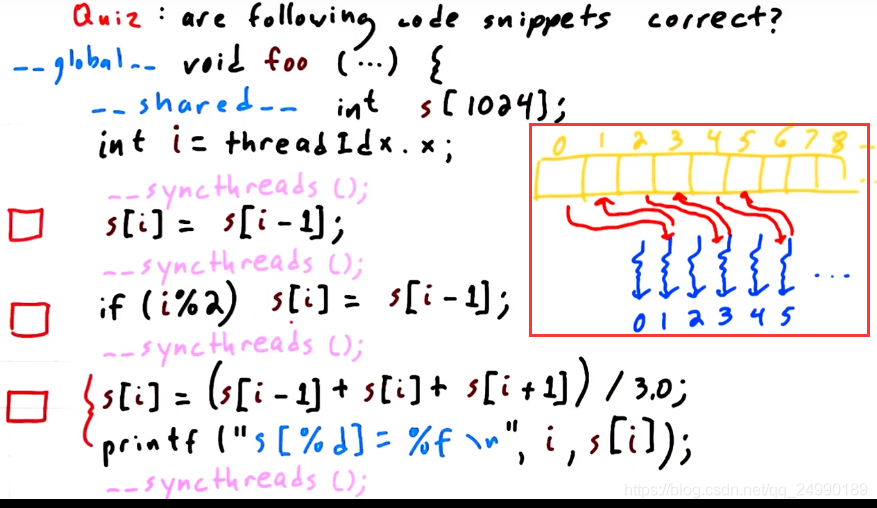 Quiz : are following code snippets correct?
__global__ void foo (...) {
__shared__ int s[1024];
int i = threadIdx.x;
__syncthreads ();
s[i] = s[i-1];
__syncthreads ();
if (i%2) s[i] = s[i-1];
__syncthreads ();
s[i] = (s[i-1] + s[i] + s[i+1]) / 3.0;
printf ("s[%d] = %f \n", i, s[i]);
__syncthreads ();
0 1 2 3 4 5 6 7 8 ...
...
0 1 2 3 4 5
https://blog.csdn.net/qq_24990189